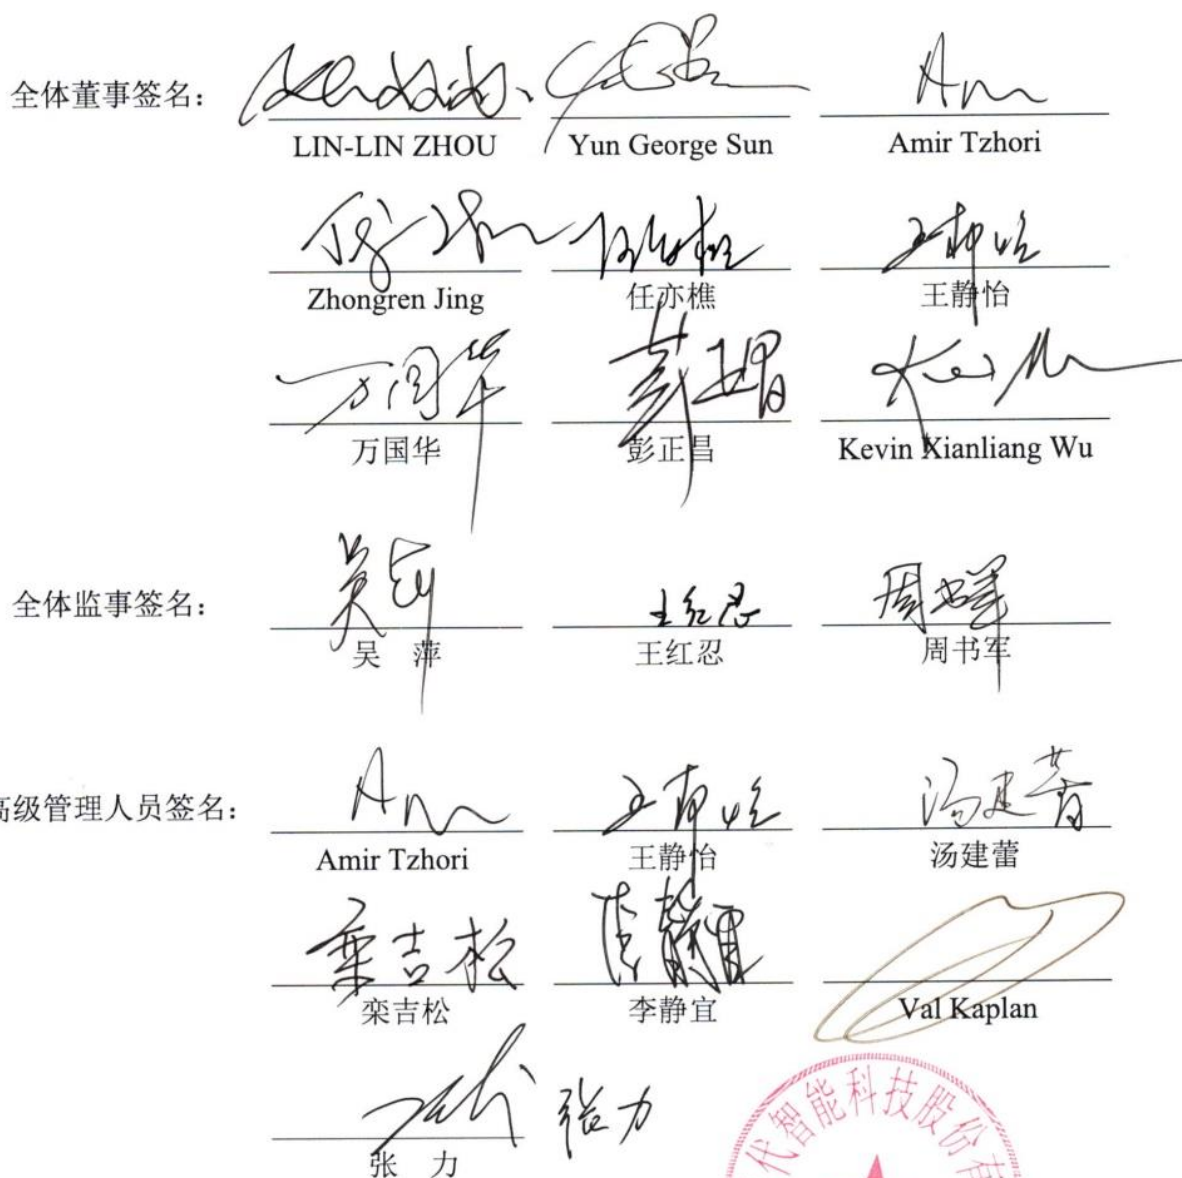 全体董事签名：
LIN-LIN ZHOU Yun George Sun Amir Tzhori
Zhongren Jing 任亦樵 王静怡
万国华 彭正昌 Kevin Xianliang Wu
全体监事签名：
吴 萍 王红忍 周书军
高级管理人员签名：
Amir Tzhori 王静怡 汤建蕾
栾吉松 李静宜 Val Kaplan
张力
张 力
代智能科技股份有